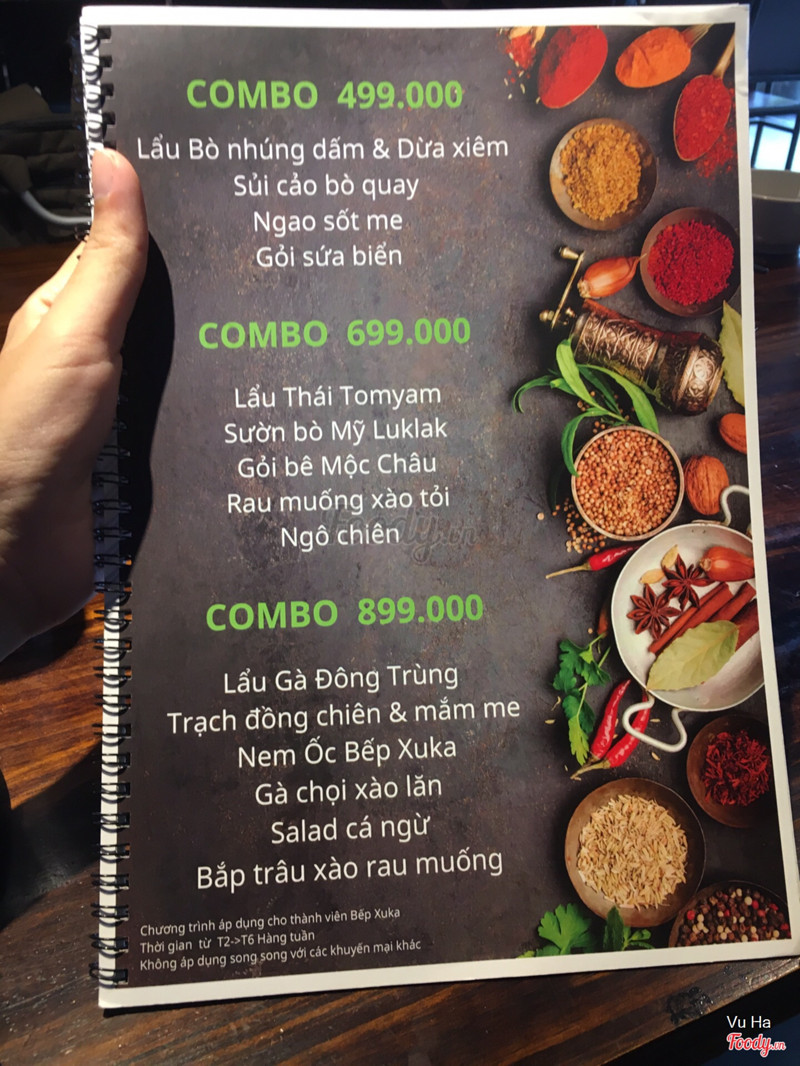 COMBO 499.000
Lẩu Bò nhúng dấm & Dừa xiêm
Sủi cảo bò quay
Ngao sốt me
Gỏi sứa biển
COMBO 699.000
Lẩu Thái Tomyam
Sườn bò Mỹ Luklak
Gỏi bê Mộc Châu
Rau muống xào tỏi
Ngô chiên
Foody.vn
COMBO 899.000
Lẩu Gà Đông Trùng
Trạch đồng chiên & mắm me
Nem Ốc Bếp Xuka
Gà chọi xào lăn
Salad cá ngừ
Bắp trâu xào rau muống
Chương trình áp dụng cho thành viên Bếp Xuka
Thời gian từ T2->T6 Hàng tuần
Không áp dụng song song với các khuyến mại khác
Vu Ha
Foody.vn